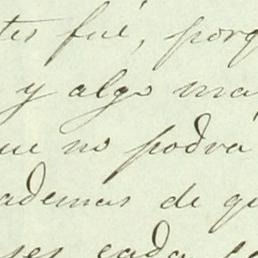 fué, porq
y algo ma
ue no podrá
ademas de qu
cada